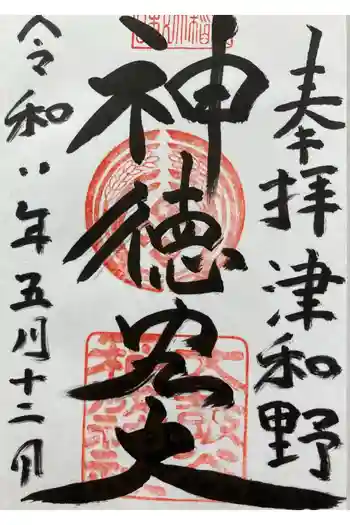 奉拝 津和野
神徳宏大
令和八年五月十二日